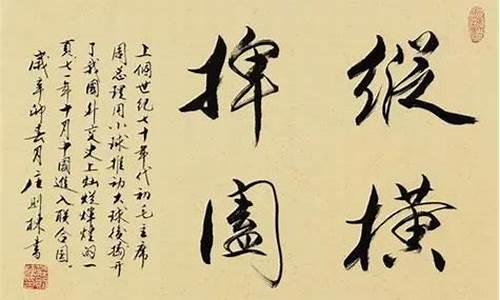 縱橫
捭闔
上個世紀七十年代初毛主席
周总理用小球推动大球後揭开
了我國外交史上灿烂輝煌的一
頁七一年十月中國進入联合国。
歲辛卯春月庄则棟書